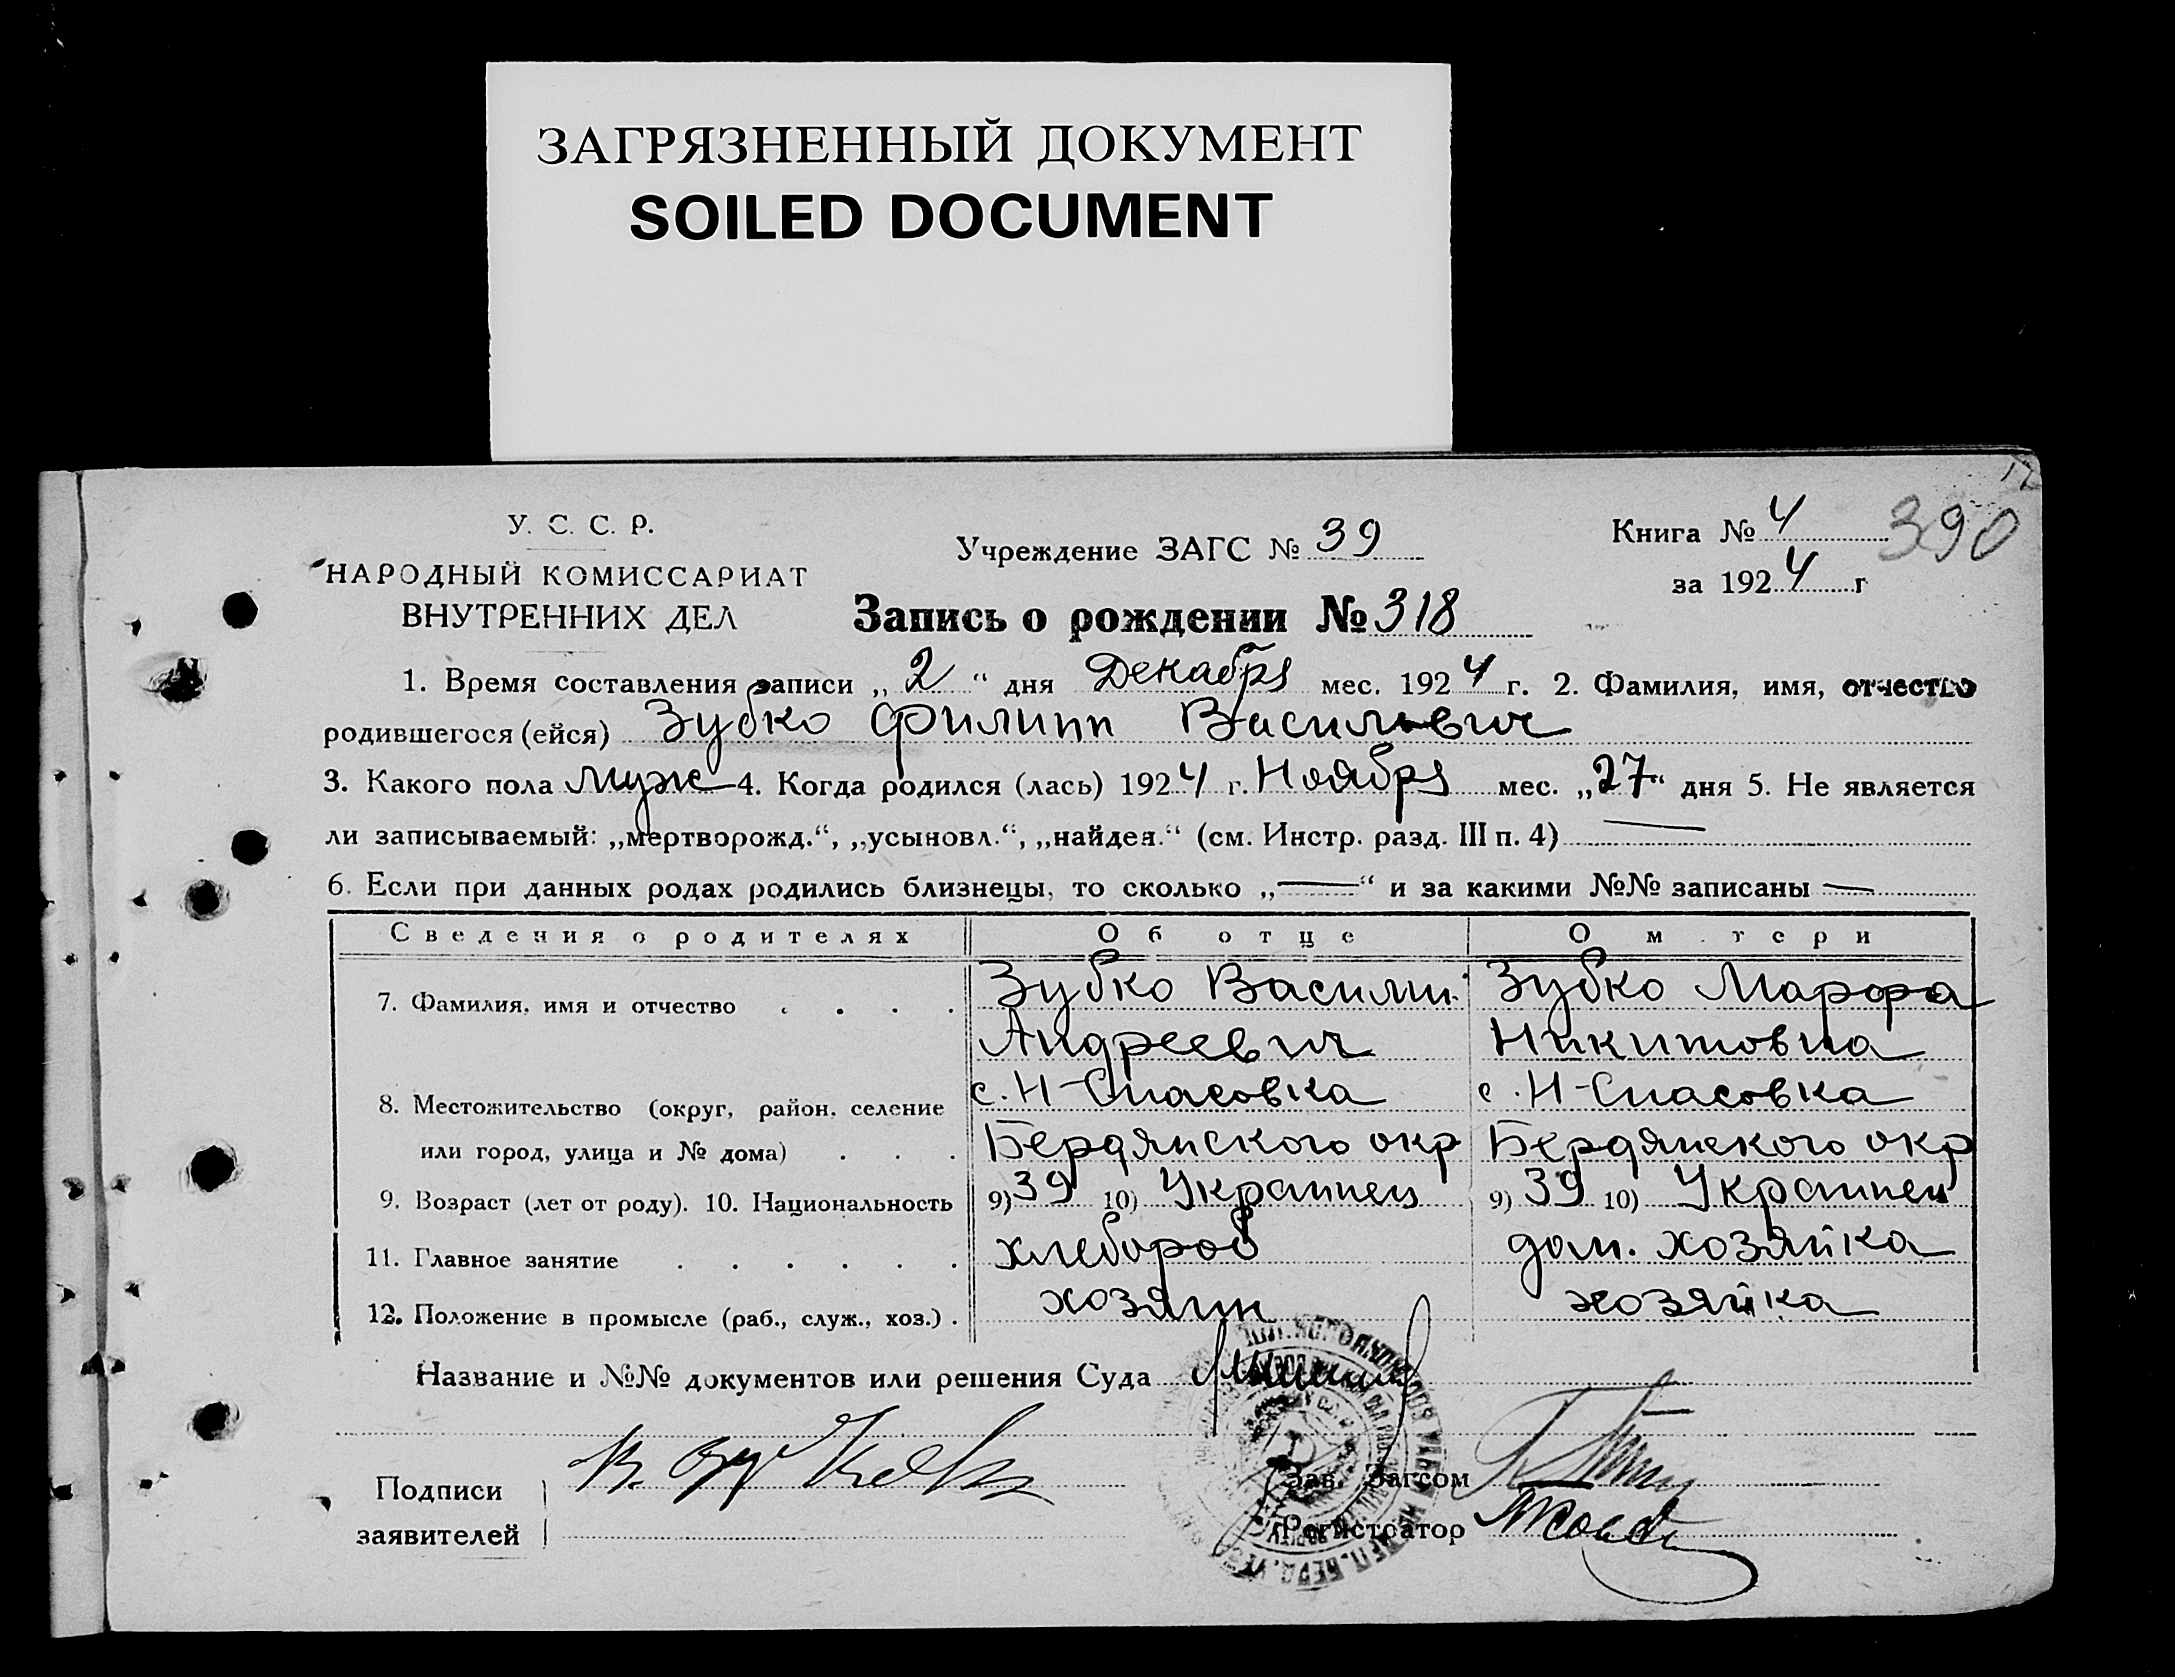 ЗАГРЯЗНЕННЫЙ ДОКУМЕНТ
SOILED DOCUMENT
12
У. С. С. Р.
НАРОДНЫЙ КОМИССАРИАТ
ВНУТРЕННИХ ДЕЛ
Учреждение ЗАГС № 39
Книга № 4
390
за 1924 г
Запись о рождении № 318
1. Время составления записи „ 2 “ дня Декабря мес. 1924 г. 2. Фамилия, имя, отчество
родившегося (ейся) Зубко Филипп Васильевич
3. Какого пола муж 4. Когда родился (лась) 1924 г. Ноября мес. „27“ дня 5. Не является
ли записываемый: „мертворожд.“, „усыновл.“, „найден.“ (см. Инстр. разд. III п. 4) —
6. Если при данных родах родились близнецы, то сколько „—“ и за какими №№ записаны —
Сведения о родителях Об отце О матери
7. Фамилия, имя и отчество . . . . Зубко Василий Зубко Марфа
Андреевич Никитовна
8. Местожительство (округ, район, селение с. Н-Спасовка с. Н-Спасовка
или город, улица и № дома) . . . Бердянского окр Бердянского окр
9. Возраст (лет от роду). 10. Национальность 9) 39 10) Украинец 9) 39 10) Украинец
11. Главное занятие . . . . . . хлебороб дом. хозяйка
12. Положение в промысле (раб., служ., хоз.) . хозяин хозяйка
Название и №№ документов или решения Суда
Подписи
заявителей
Зав. Загсом
Регистратор